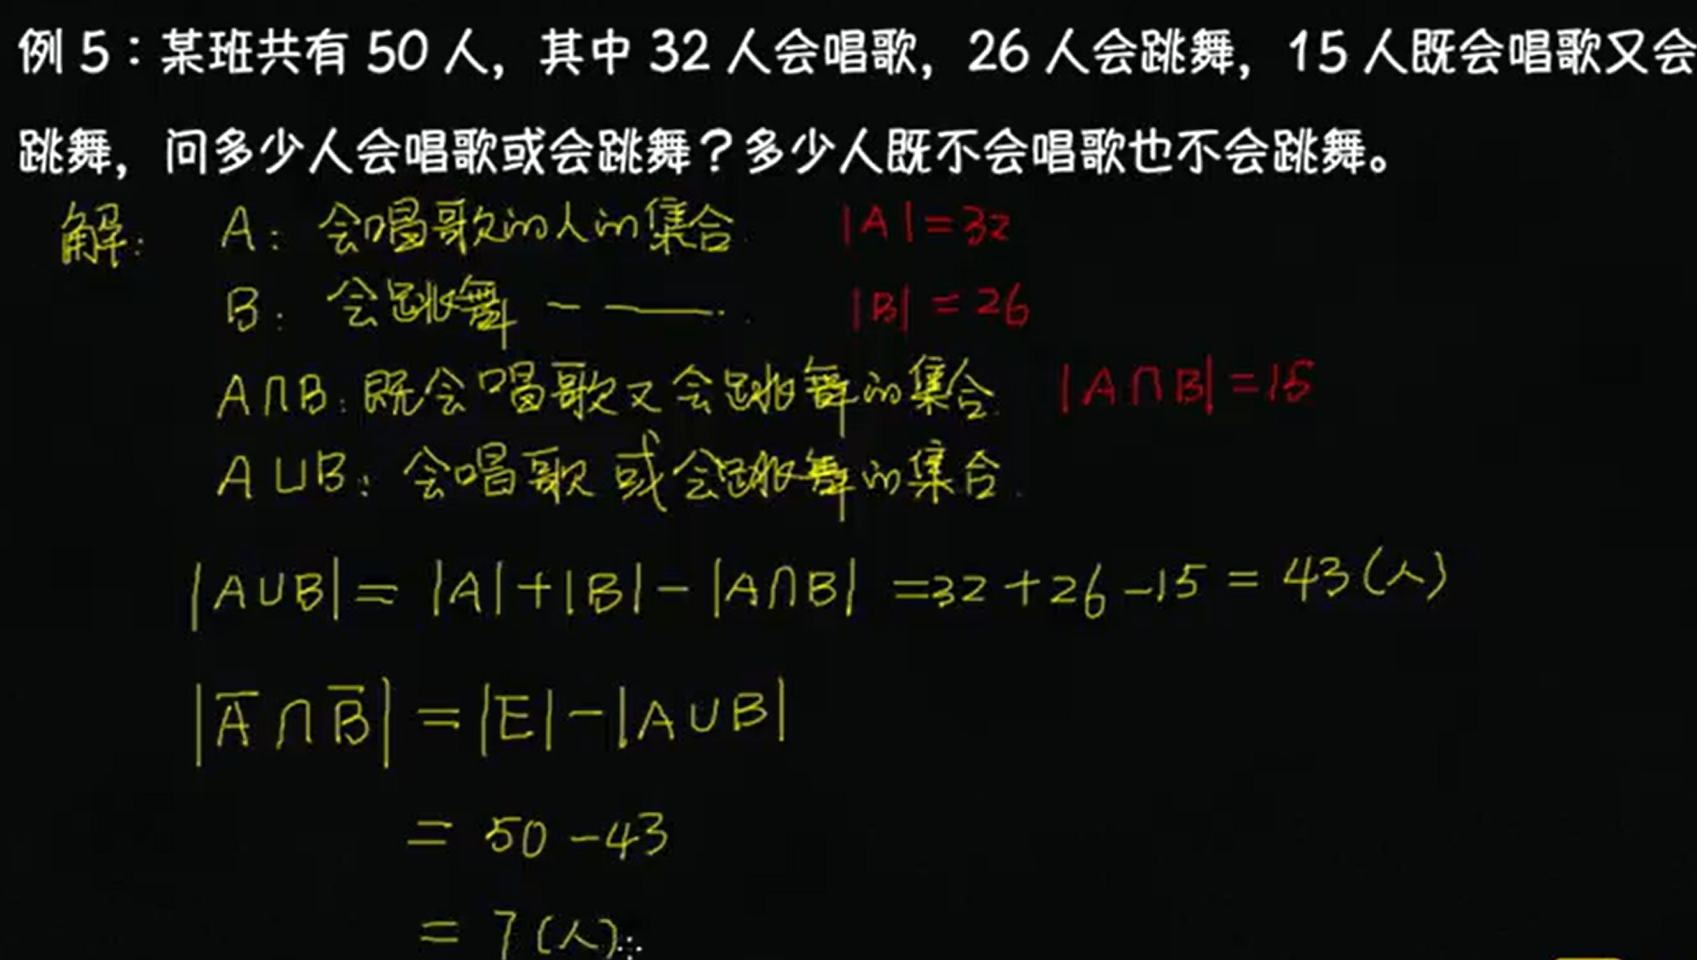 例 5：某班共有 50 人，其中 32 人会唱歌，26 人会跳舞，15 人既会唱歌又会
跳舞，问多少人会唱歌或会跳舞？多少人既不会唱歌也不会跳舞。
解: A: 会唱歌的人的集合. |A|=32
B: 会跳舞 - ——. |B|=26
A∩B: 既会唱歌又会跳舞的集合. |A∩B|=15
A∪B: 会唱歌或会跳舞的集合.
|A∪B|=|A|+|B|-|A∩B| =32+26-15=43(人)
|A̅∩B̅|=|E|-|A∪B|
= 50-43
= 7(人)